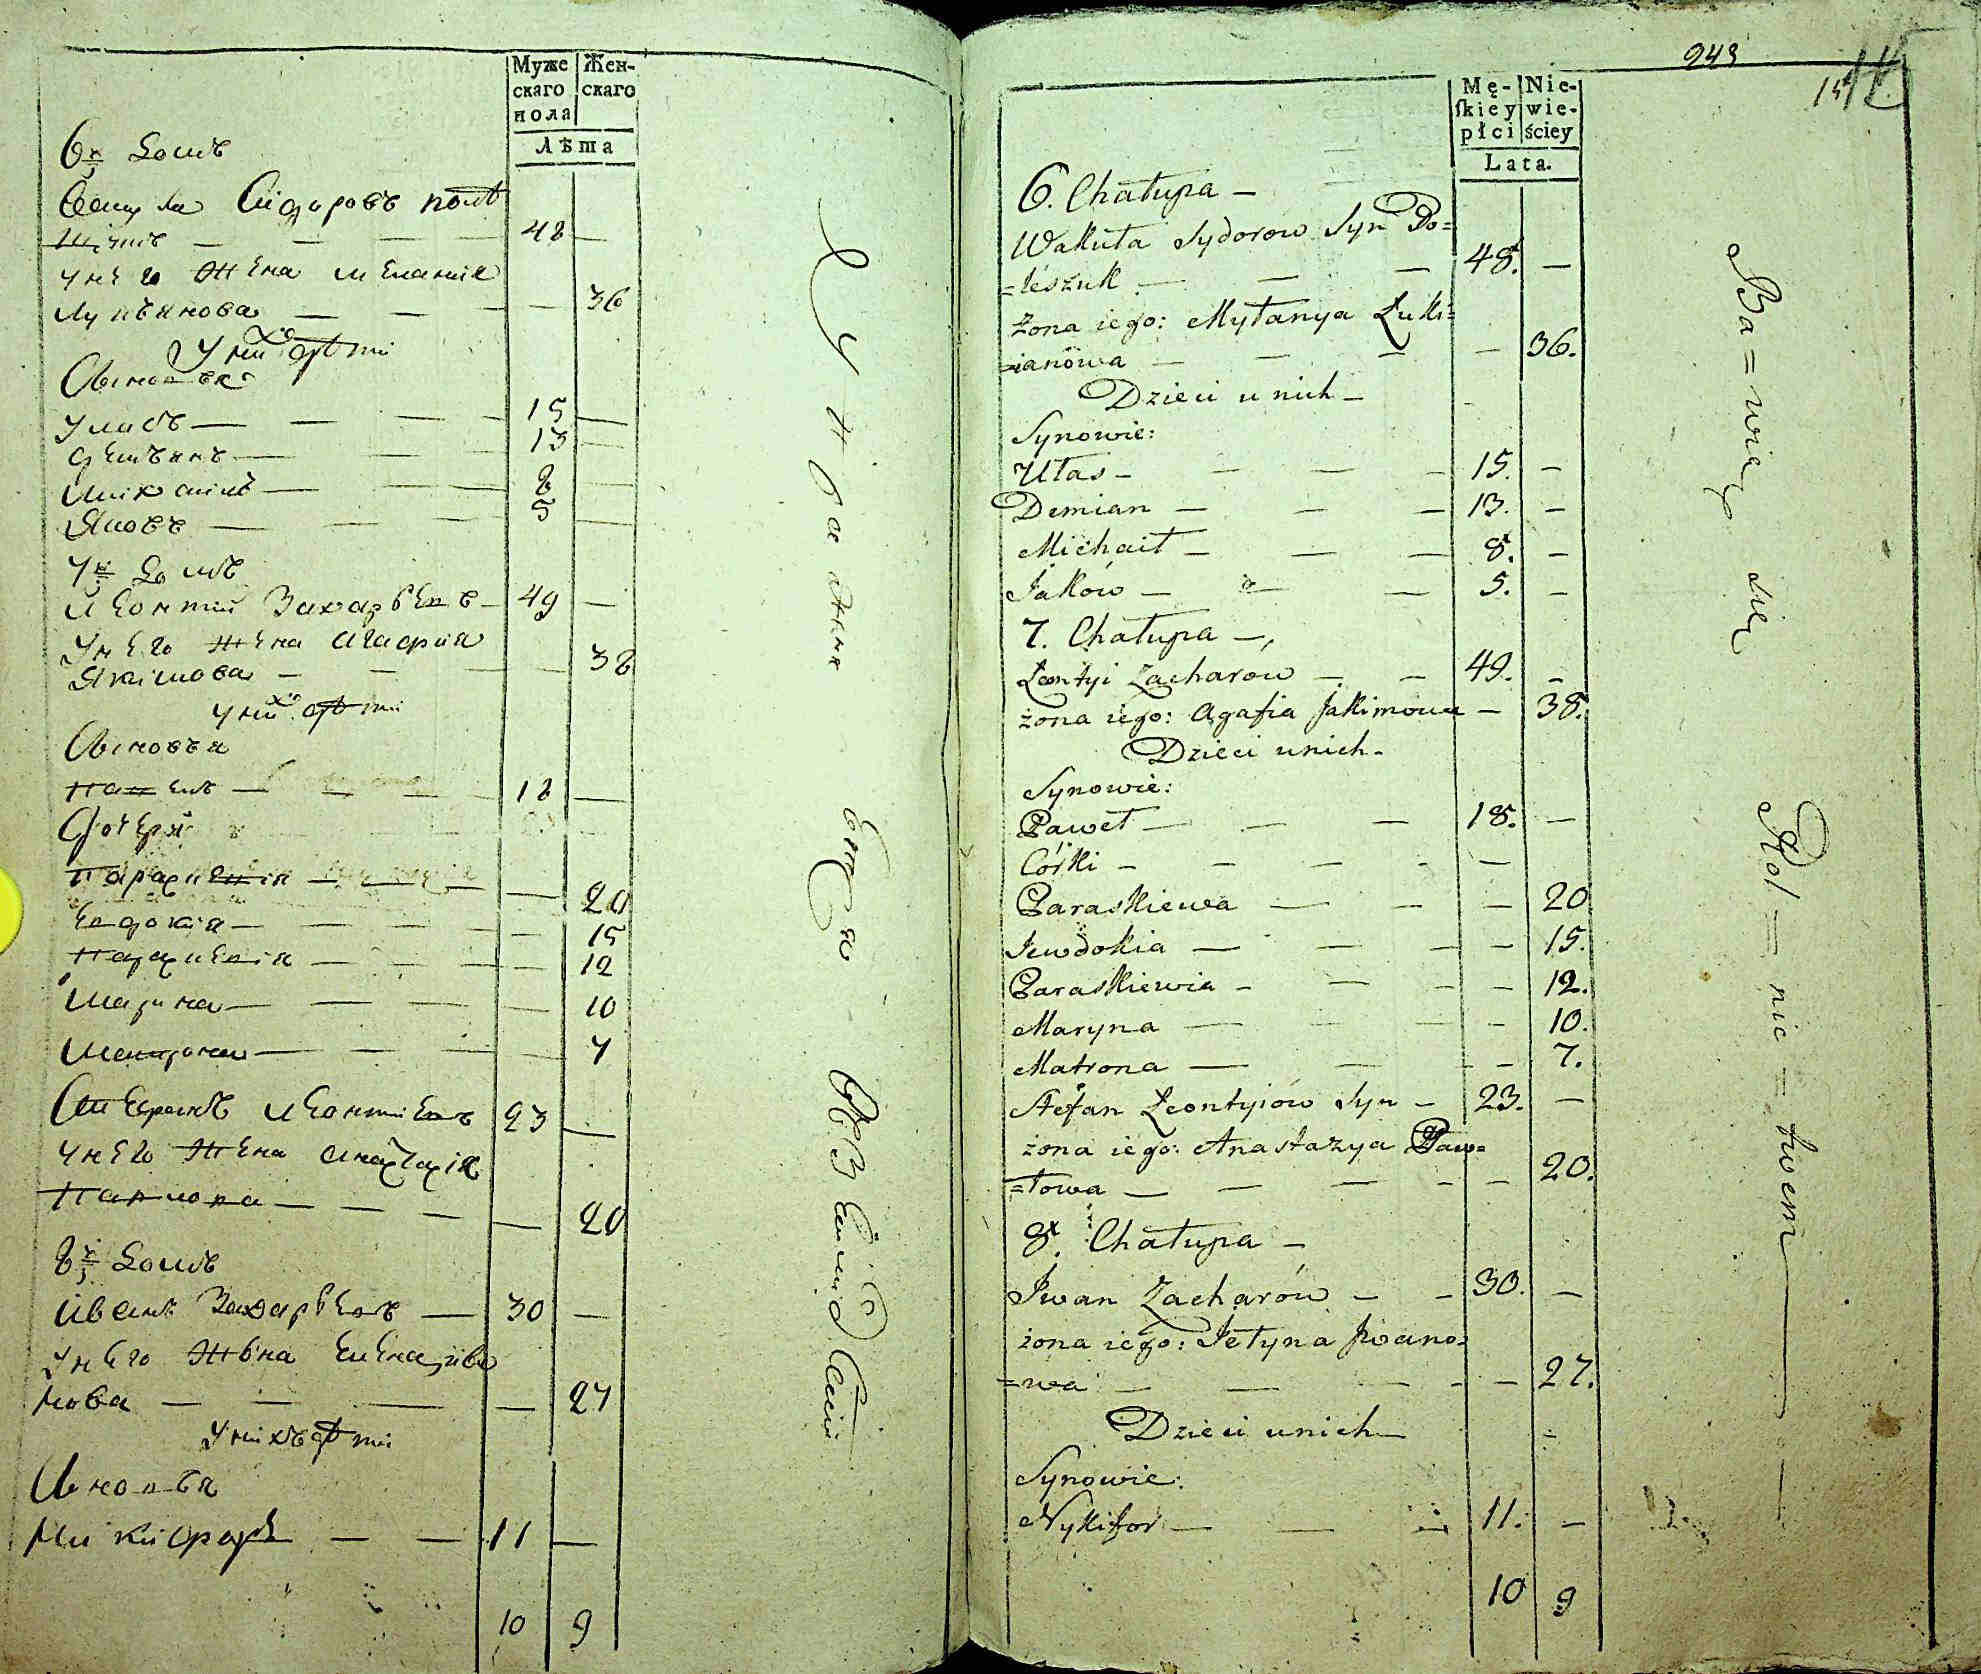 Муже Жен-
скаго скаго
пола
Лѣта
6й домъ
Вакула Сидоровъ полѣ
щукъ — 48 —
у него жена мелания
лукянова — 36
у нихъ дѣти
Сыновья
уласъ — 15 —
демьянъ — 13 —
михаилъ — 8 —
Яковъ — 5 —
7й домъ
леонтий Захарьевъ — 49 —
у него жена агафия
Якимова — 38
у нихъ дѣти
Сыновья
павелъ — 18 —
дочери
параскевия — 20
евдокия — 15
параскевия — 12
марина — 10
матрона — 7
Стефанъ леонтиевъ 23 —
у него жена анастасия
павлова — 20
8й домъ
иванъ Захарьевъ — 30 —
у него жена елена ива
нова — 27
у нихъ дѣти
Сыновья
никифоръ — 11 —
10 9
243
Mę- Nie-
skiey wie-
płci ściey
Lata.
6. Chałupa —
Wakuła Sydorow Syn Po=
=leszuk — 48. —
żona iego: Myłanya Łuki=
=ianowa — 36.
Dzieci u nich —
Synowie:
Ułas — 15. —
Demian — 13. —
Michaił — 8. —
Jaków — 5. —
7. Chałupa —
Leontyi Zacharow — 49. —
żona iego: Agafia Jakimowa — 38.
Dzieci u nich —
Synowie:
Paweł — 18. —
Córki —
Paraskiewa — 20
Jewdokia — 15.
Paraskiewia — 12.
Maryna — 10.
Matrona — 7.
Stefan Leontyiów Syn — 23. —
żona iego: Anastazya Paw=
=łowa — 20.
8. Chałupa —
Iwan Zacharów — 30. —
żona iego: Jełyna Iwano=
=wa — 27.
Dzieci u nich —
Synowie:
Nykifor — 11. —
10 9
Ba = wią się Rol = nic = twem